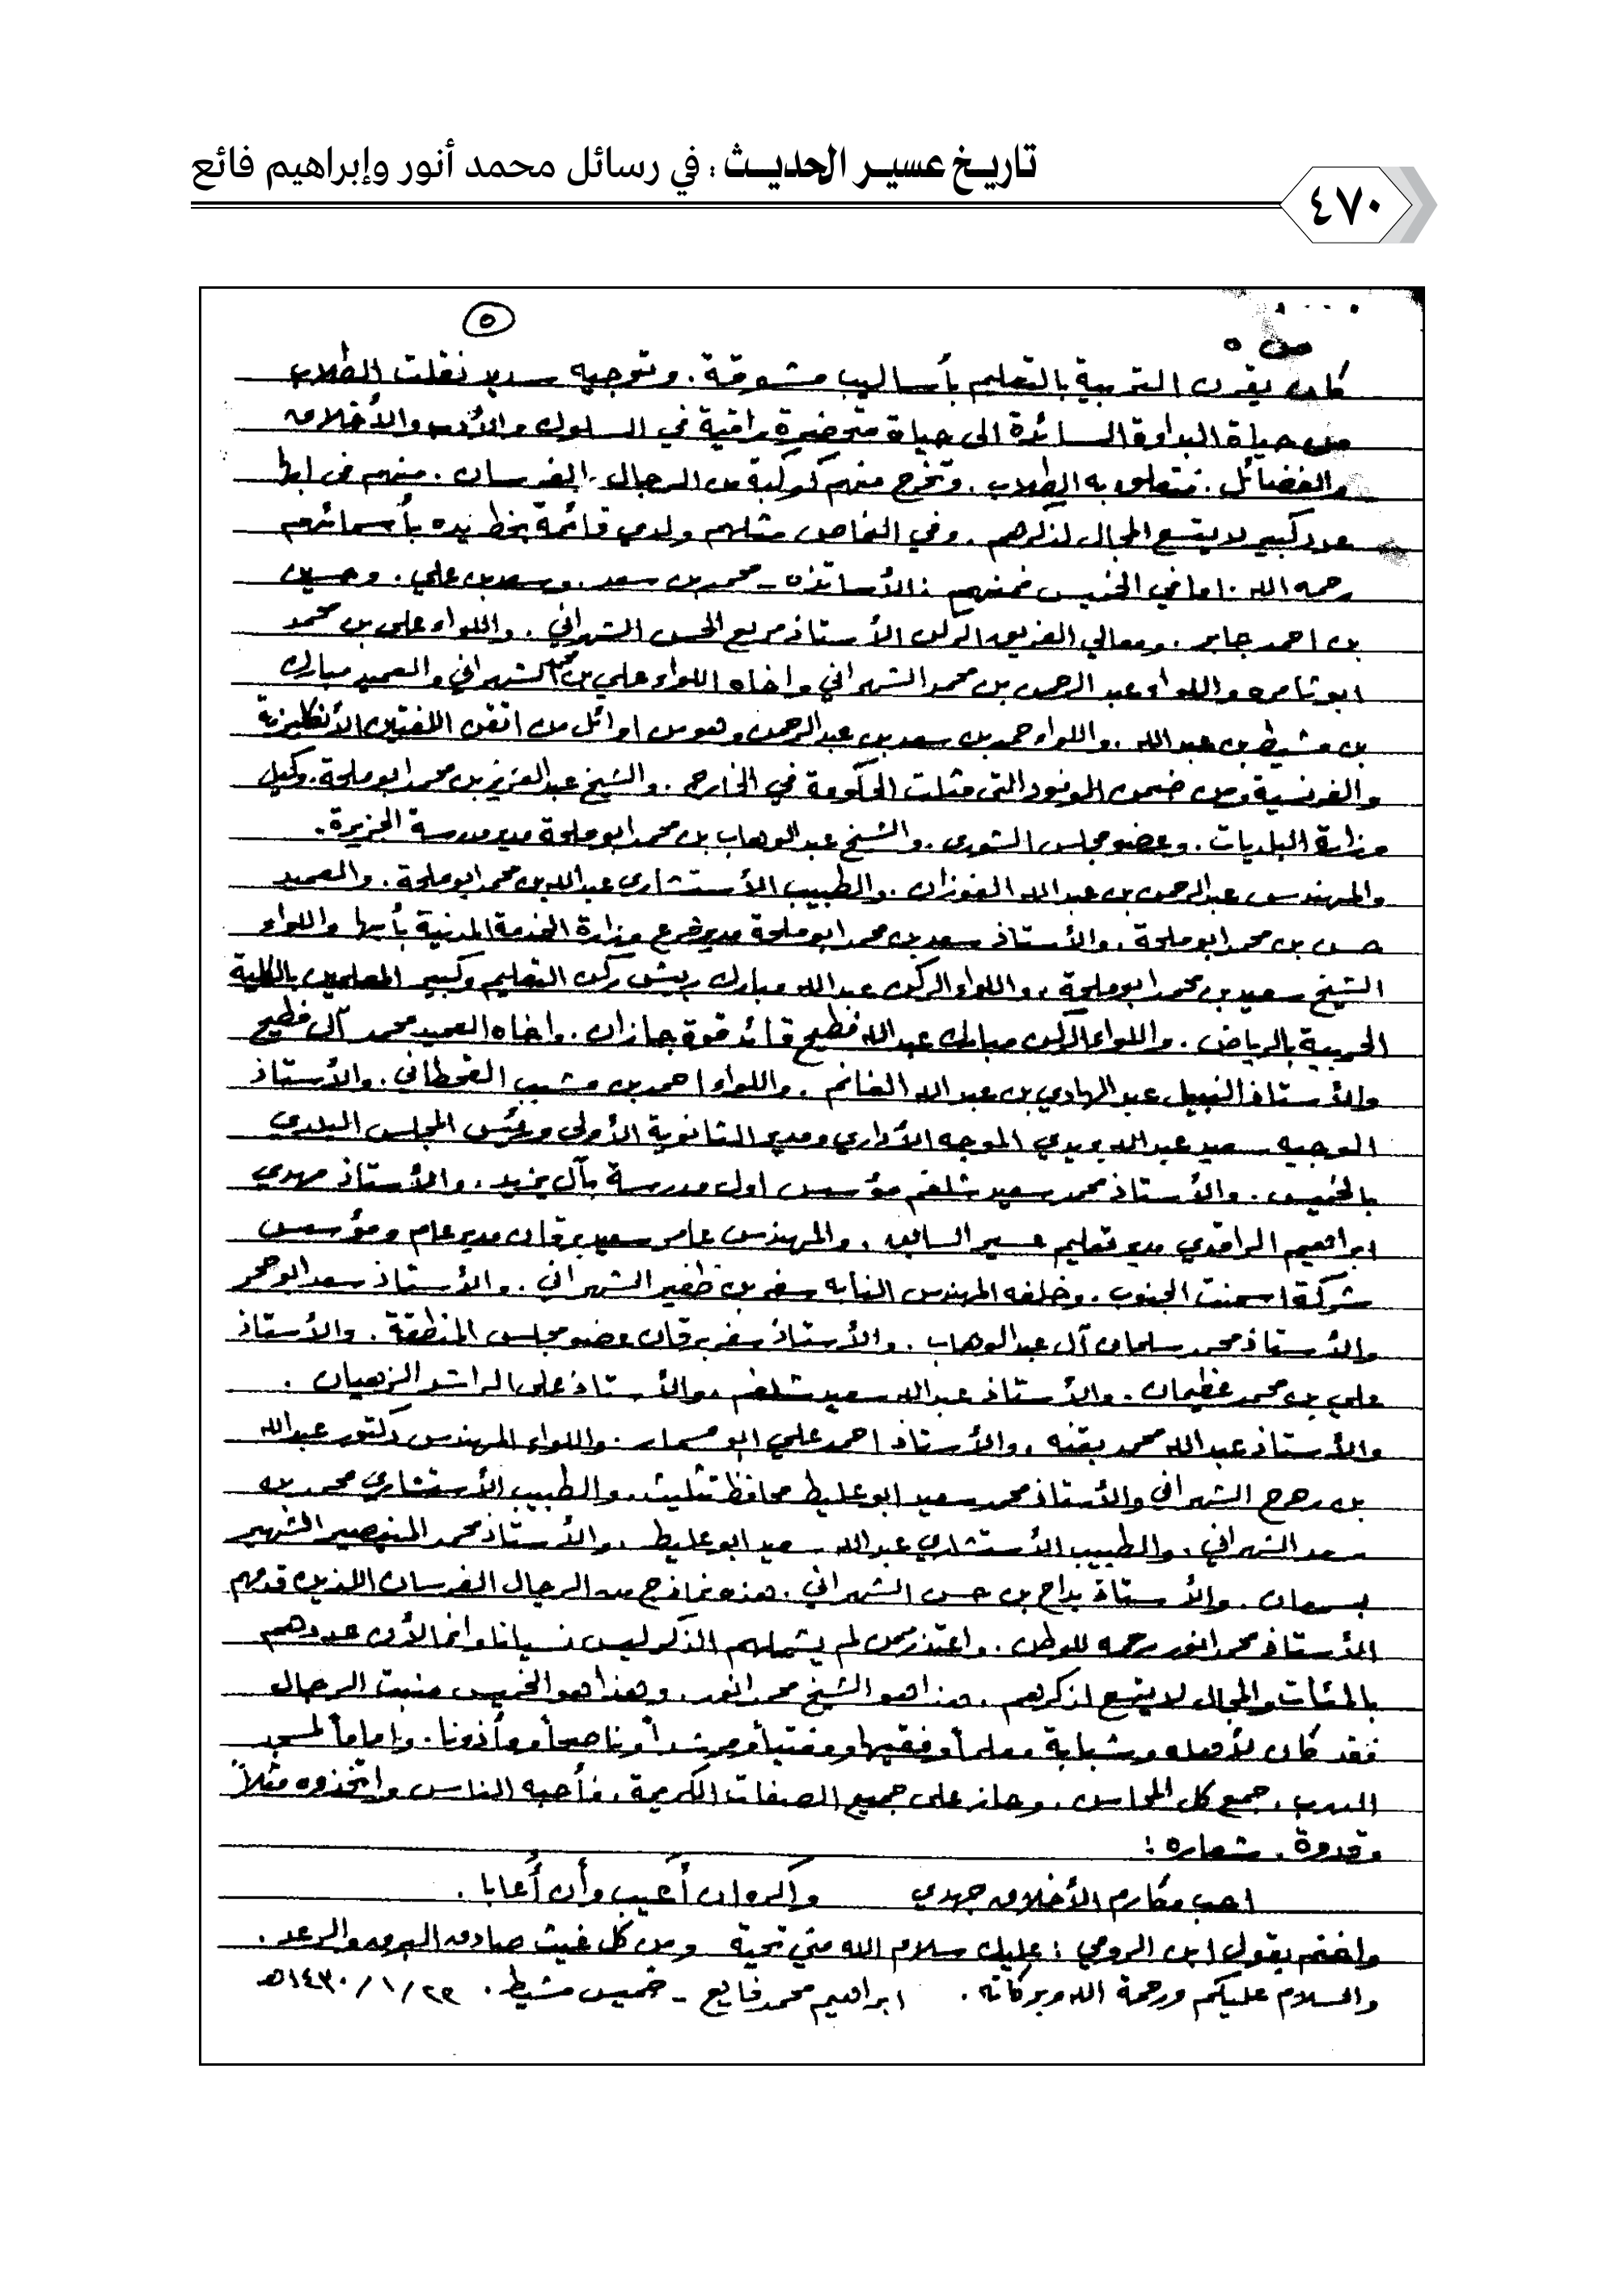 تاريخ عسير الحديث : في رسائل محمد أنور وإبراهيم فائع
٤٧٠
٥
ص ٥
كان يقرن التربية بالتعليم بأساليب مشوقة . وتوجيه سديد نقلت الطلاب
من حياة البداوة السائدة الى حياة متحضرة راقية في السلوك والأدب والأخلاق
والفضائل . فتعلق به الطلاب . وتخرج منهم كوكبة من الرجال الفرسان . منهم في ابها
عدد كبير لا يتسع المجال لذكرهم . وفي النماص مثلهم ولدي قائمة بخط يده بأسمائهم
رحمه الله . اما في الخميس فمنهم : الأساتذة - محمد بن سعد . وسعد بن علي . وحسين
بن احمد جابر . ومعالي الفريق الركن الأستاذ مريع الحسن الشهراني . واللواء علي بن محمد
ابو ثامره واللواء عبد الرحمن بن محمد الشهراني واخاه اللواء علي بن محمد الشهراني والعميد مبارك
بن مشيط بن عبد الله . واللواء حمد بن سعد بن عبدالرحمن وهو من اوائل من اتقن اللغتين الأنكليزية
والفرنسية ومن ضمن الوفود التي مثلت الحكومة في الخارج . والشيخ عبد العزيز بن محمد ابو ملحة . وكيل
وزارة البلديات . وعضو مجلس الشورى . والشيخ عبد الوهاب بن محمد ابو ملحة مدير مدرسة الجزيرة .
والمهندس عبد الرحمن بن عبد الله الفوزان . والطبيب الأستشاري عبد الله بن محمد ابو ملحة . والعميد
حسن بن محمد ابو ملحة . والأستاذ سعد بن محمد ابو ملحة مدير فرع وزارة الخدمة المدنية بأبها واللواء
الشيخ سعيد بن محمد ابو ملحة . واللواء الركن عبد الله مبارك رئيس ركن التعليم وكبير المعلمين بالكلية
الحربية بالرياض . واللواء الركن مبارك عبد الله فطيح قائد قوة جازان . واخاه العميد محمد آل فطيح
والأستاذ النبيل عبد الهادي بن عبد الله الغانم . واللواء احمد بن مشبب القحطاني . والأستاذ
الوجيه سعيد عبد الله بريدي الموجه الأداري ومدير الثانوية الأولى ورئيس المجلس البلدي
بالخميس . والأستاذ محمد سعيد شلغم مؤسس اول مدرسة بآل يزيد . والأستاذ مهدي
ابراهيم الراقدي مدير تعليم عسير السابق . والمهندس عامر سعيد برقان مدير عام ومؤسس
شركة اسمنت الجنوب . وخلفه المهندس النابه سفر بن ظفير الشهراني . والأستاذ سعد ابو حجر
والأستاذ محمد سلمان آل عبد الوهاب . والأستاذ سفر برقان عضو مجلس المنطقة . والأستاذ
علي بن محمد عظيمان . والأستاذ عبد الله سعيد شلغم . والأستاذ علي الراشد الزهيان .
والأستاذ عبد الله محمد بقنه . والأستاذ احمد علي ابو مسمار . واللواء المهندس دكتور عبد الله
بن الشهراني والأستاذ محمد سعيد ابو عليط محافظ تثليث . والطبيب الأستشاري محمد بن
سعد الشهراني . والطبيب الأستشاري عبد الله سعيد ابو عليط . والأستاذ محمد الشهير
بسرحان . والأستاذ بداح بن حسن الشهراني . هذه نماذج من الرجال الفرسان اللذين قدمهم
الأستاذ محمد انور رحمه للوطن . واعتذر ممن لم يشملهم الذكر ليس نسيانا وانما لأن عددهم
بالمئات والمجال لا يتسع لذكرهم . هذا هو الشيخ محمد انور . وهذا هو الخميس منبت الرجال
فقد كان لأهله وشبابه معلماً وفقيها ومفتياً ومرشداً وناصحاً ومأذونا . واماماً لمسجد
الدرب . جمع كل المحاسن . وحاز على جميع الصفات الكريمة . فأحبه الناس واتخذوه مثلاً
وقدوة . شعاره :
احب مكارم الأخلاق جهدي واكره ان أَعيب وأن أُعابا .
واختم بقول ابن الرومي : عليك سلام الله مني تحية ومن كل غيث صادق البرق والرعد .
والسلام عليكم ورحمة الله وبركاته . ابراهيم محمد فايع - خميس مشيط . ٢٢/١/١٤٣٠هـ